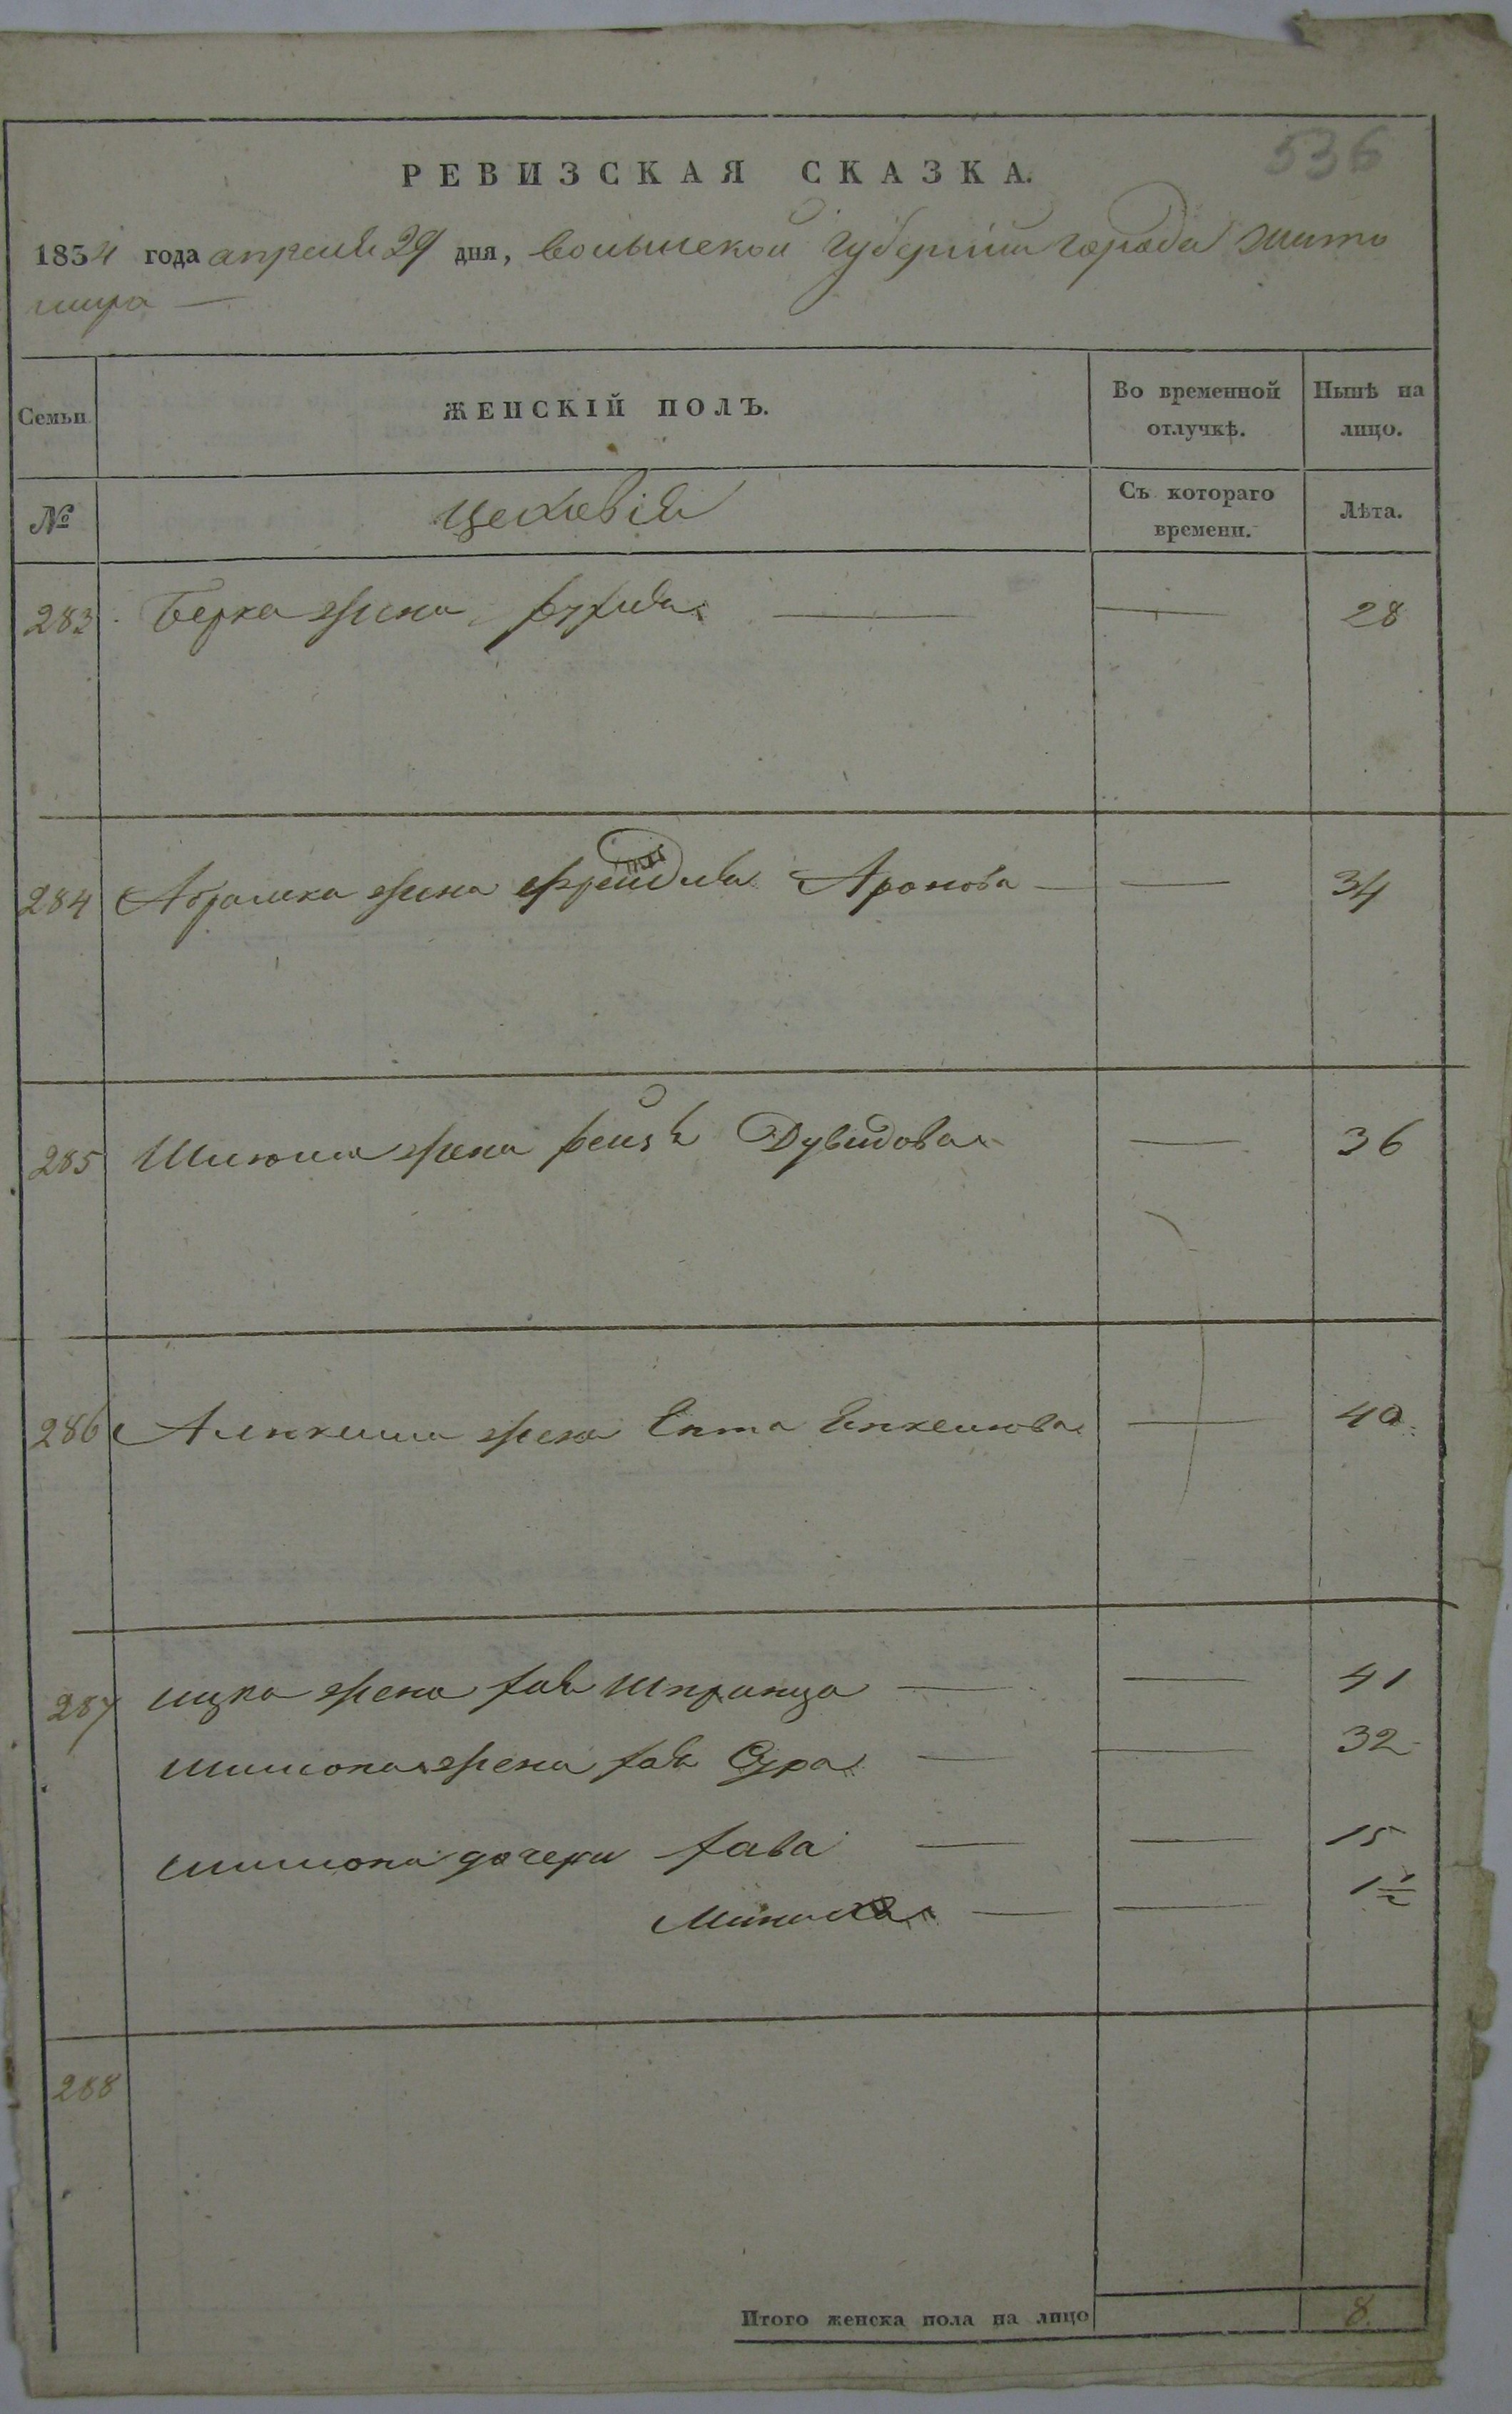 536
РЕВИЗСКАЯ СКАЗКА.
1834 года апреля 29 дня, волынской губернии города Жито
мира —
Семьи
ЖЕНСКІЙ ПОЛЪ.
Во временной отлучкѣ.
Нынѣ на лицо.
№
цеховія
Съ котораго времени.
Лѣта.
283 Берка жена — — 28
284 Абрамка жена Аронова — — 34
285 жена рейзя Дувидова — 36
286 жена Ента — 40
287 ицка жена хая Шпринца — — 41
шимона жена хая Сура — — 32
шимона дочери хава — — 15
— — 1½
288
Итого женска пола на лицо 8.